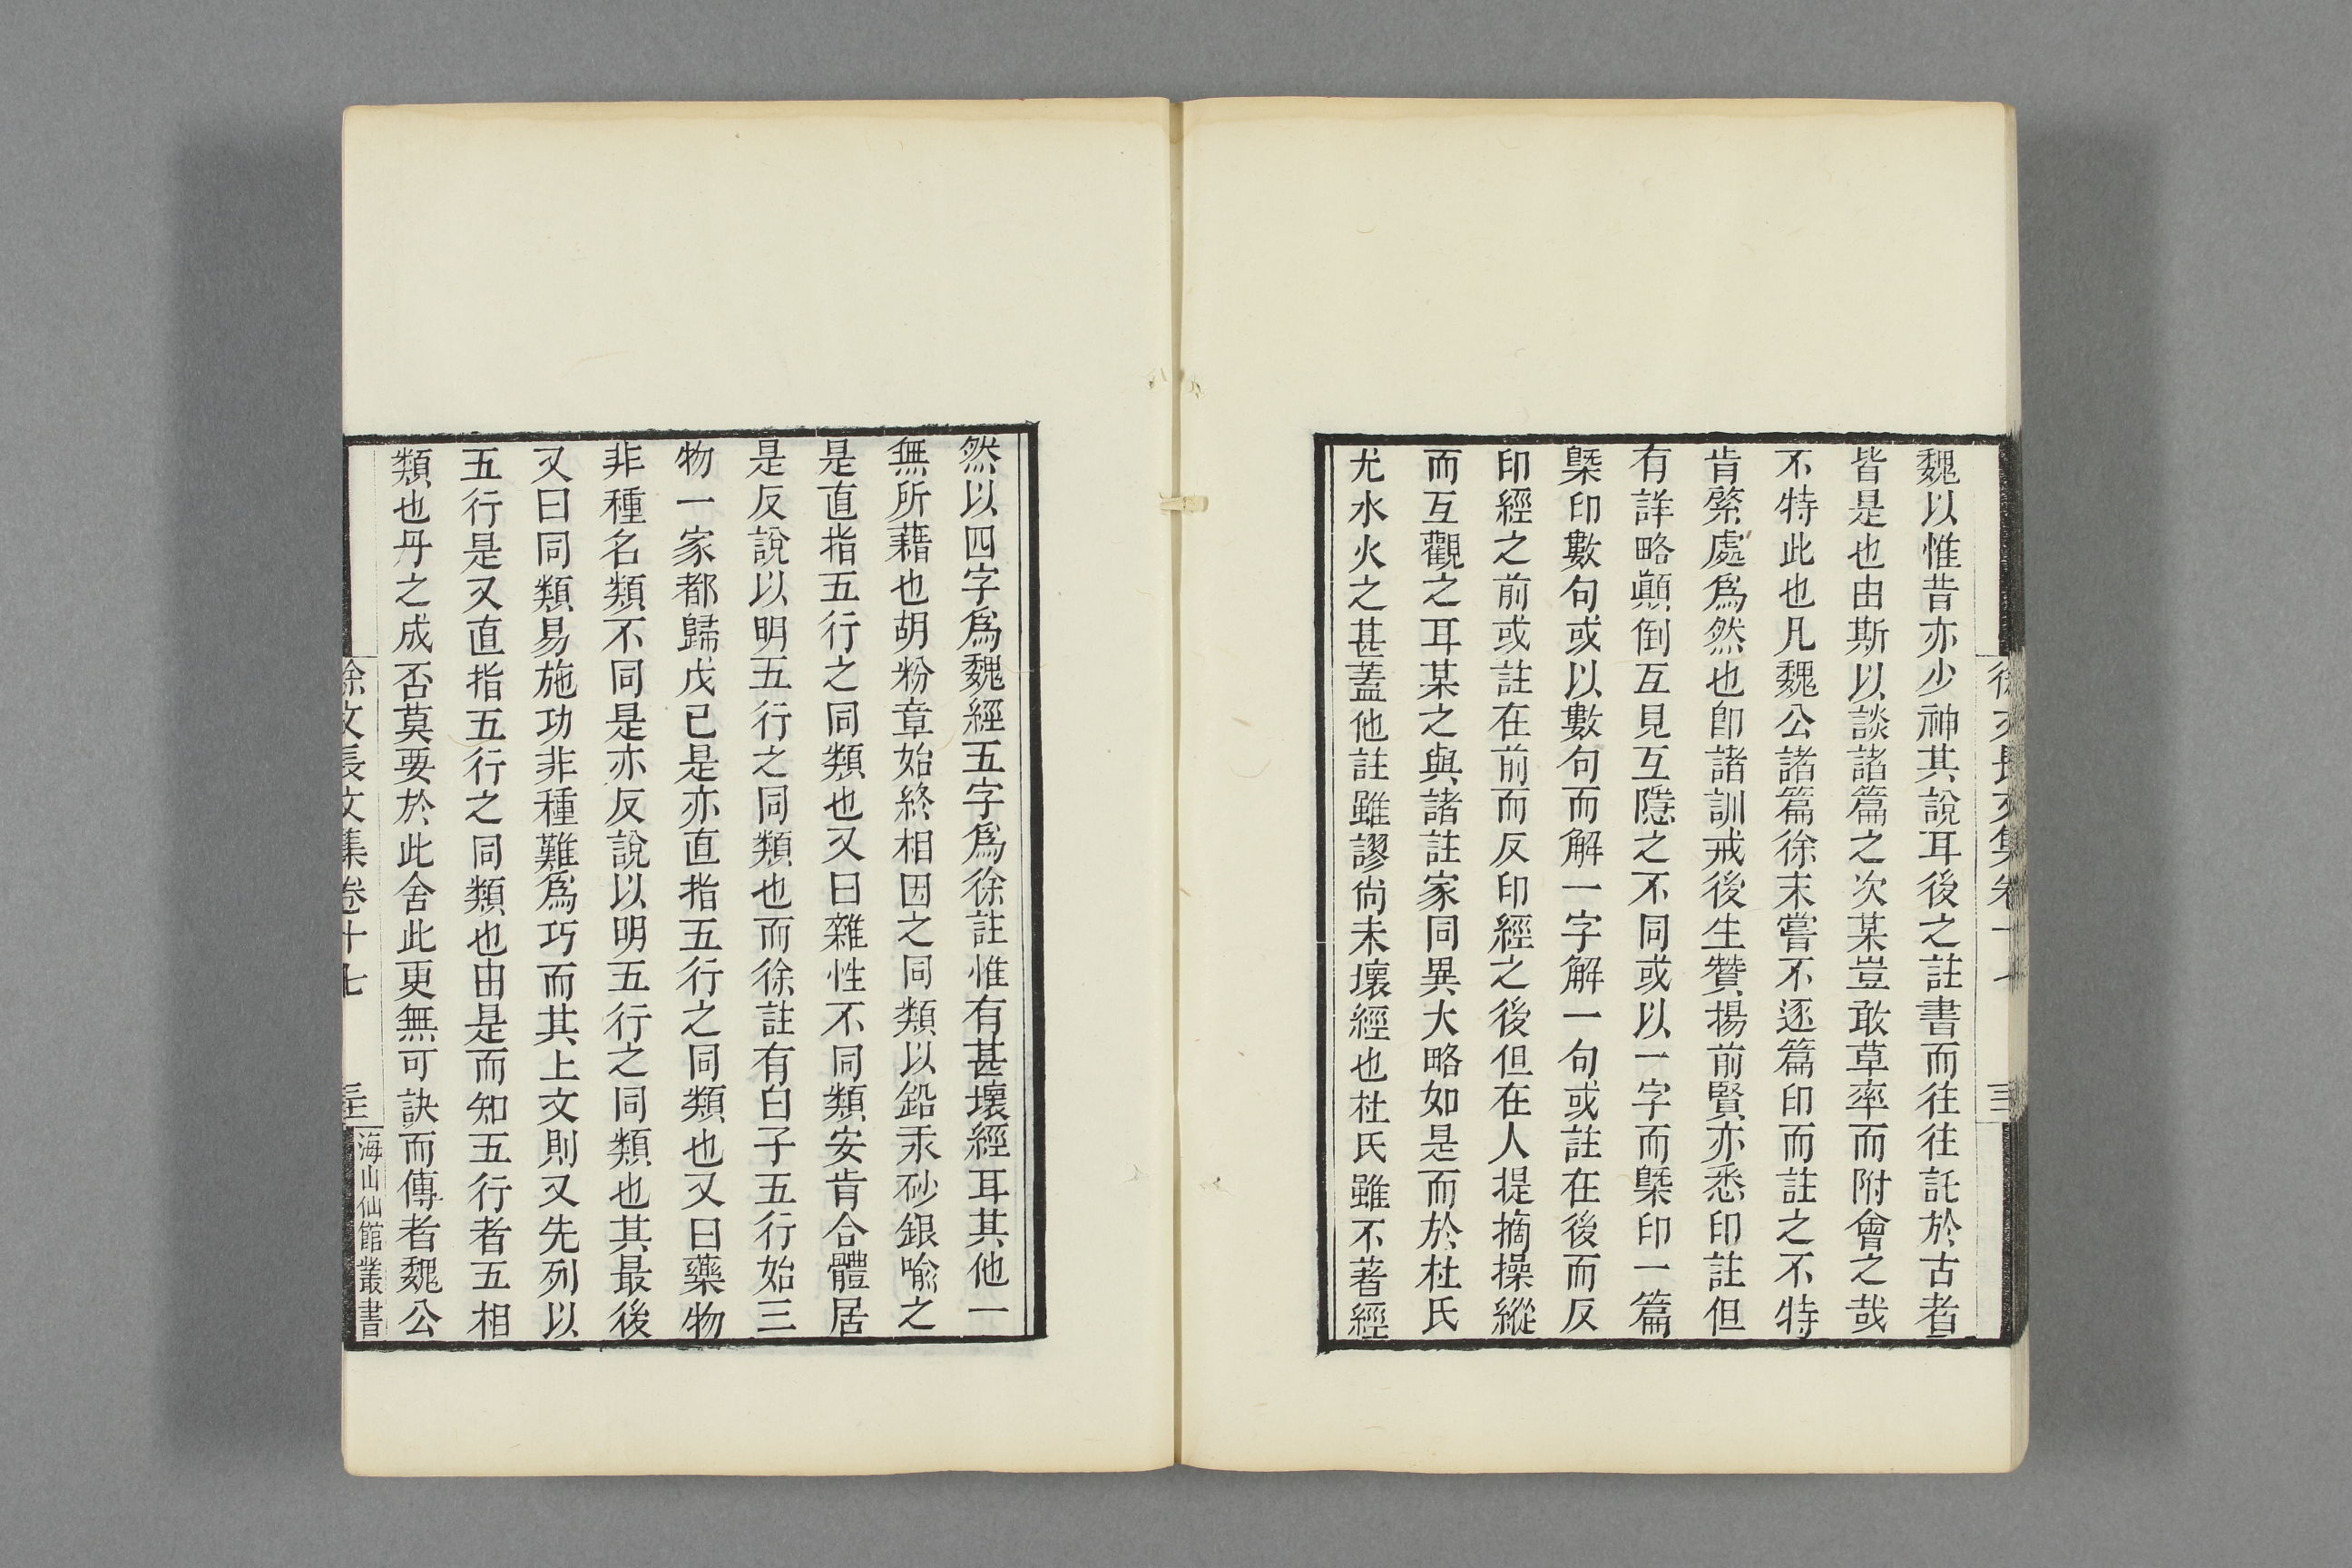 魏以惟昔亦少神其說耳後之註書而往往託於古者
皆是也由斯以談諸篇之次某豈敢草率而附會之哉
不特此也凡魏公諸篇徐未嘗不逐篇印而註之不特
肯綮處爲然也卽諸訓戒後生贊揚前賢亦悉印註但
有詳略顛倒互見互隱之不同或以一字而槩印一篇
槩印數句或以數句而解一字解一句或註在後而反
印經之前或註在前而反印經之後但在人提摘操縱
而互觀之耳某之與諸註家同異大略如是而於杜氏
尤水火之甚蓋他註雖謬尙未壞經也杜氏雖不著經
然以四字爲魏經五字爲徐註惟有甚壞經耳其他一
無所藉也胡粉章始終相因之同類以鉛汞砂銀喻之
是直指五行之同類也又曰雜性不同類安肯合體居
是反說以明五行之同類也而徐註有白子五行始三
物一家都歸戊己是亦直指五行之同類也又曰藥物
非種名類不同是亦反說以明五行之同類也其最後
又曰同類易施功非種難爲巧而其上文則又先列以
五行是又直指五行之同類也由是而知五行者五相
類也丹之成否莫要於此舍此更無可訣而傳者魏公
徐文長文集卷十七
海山仙館叢書